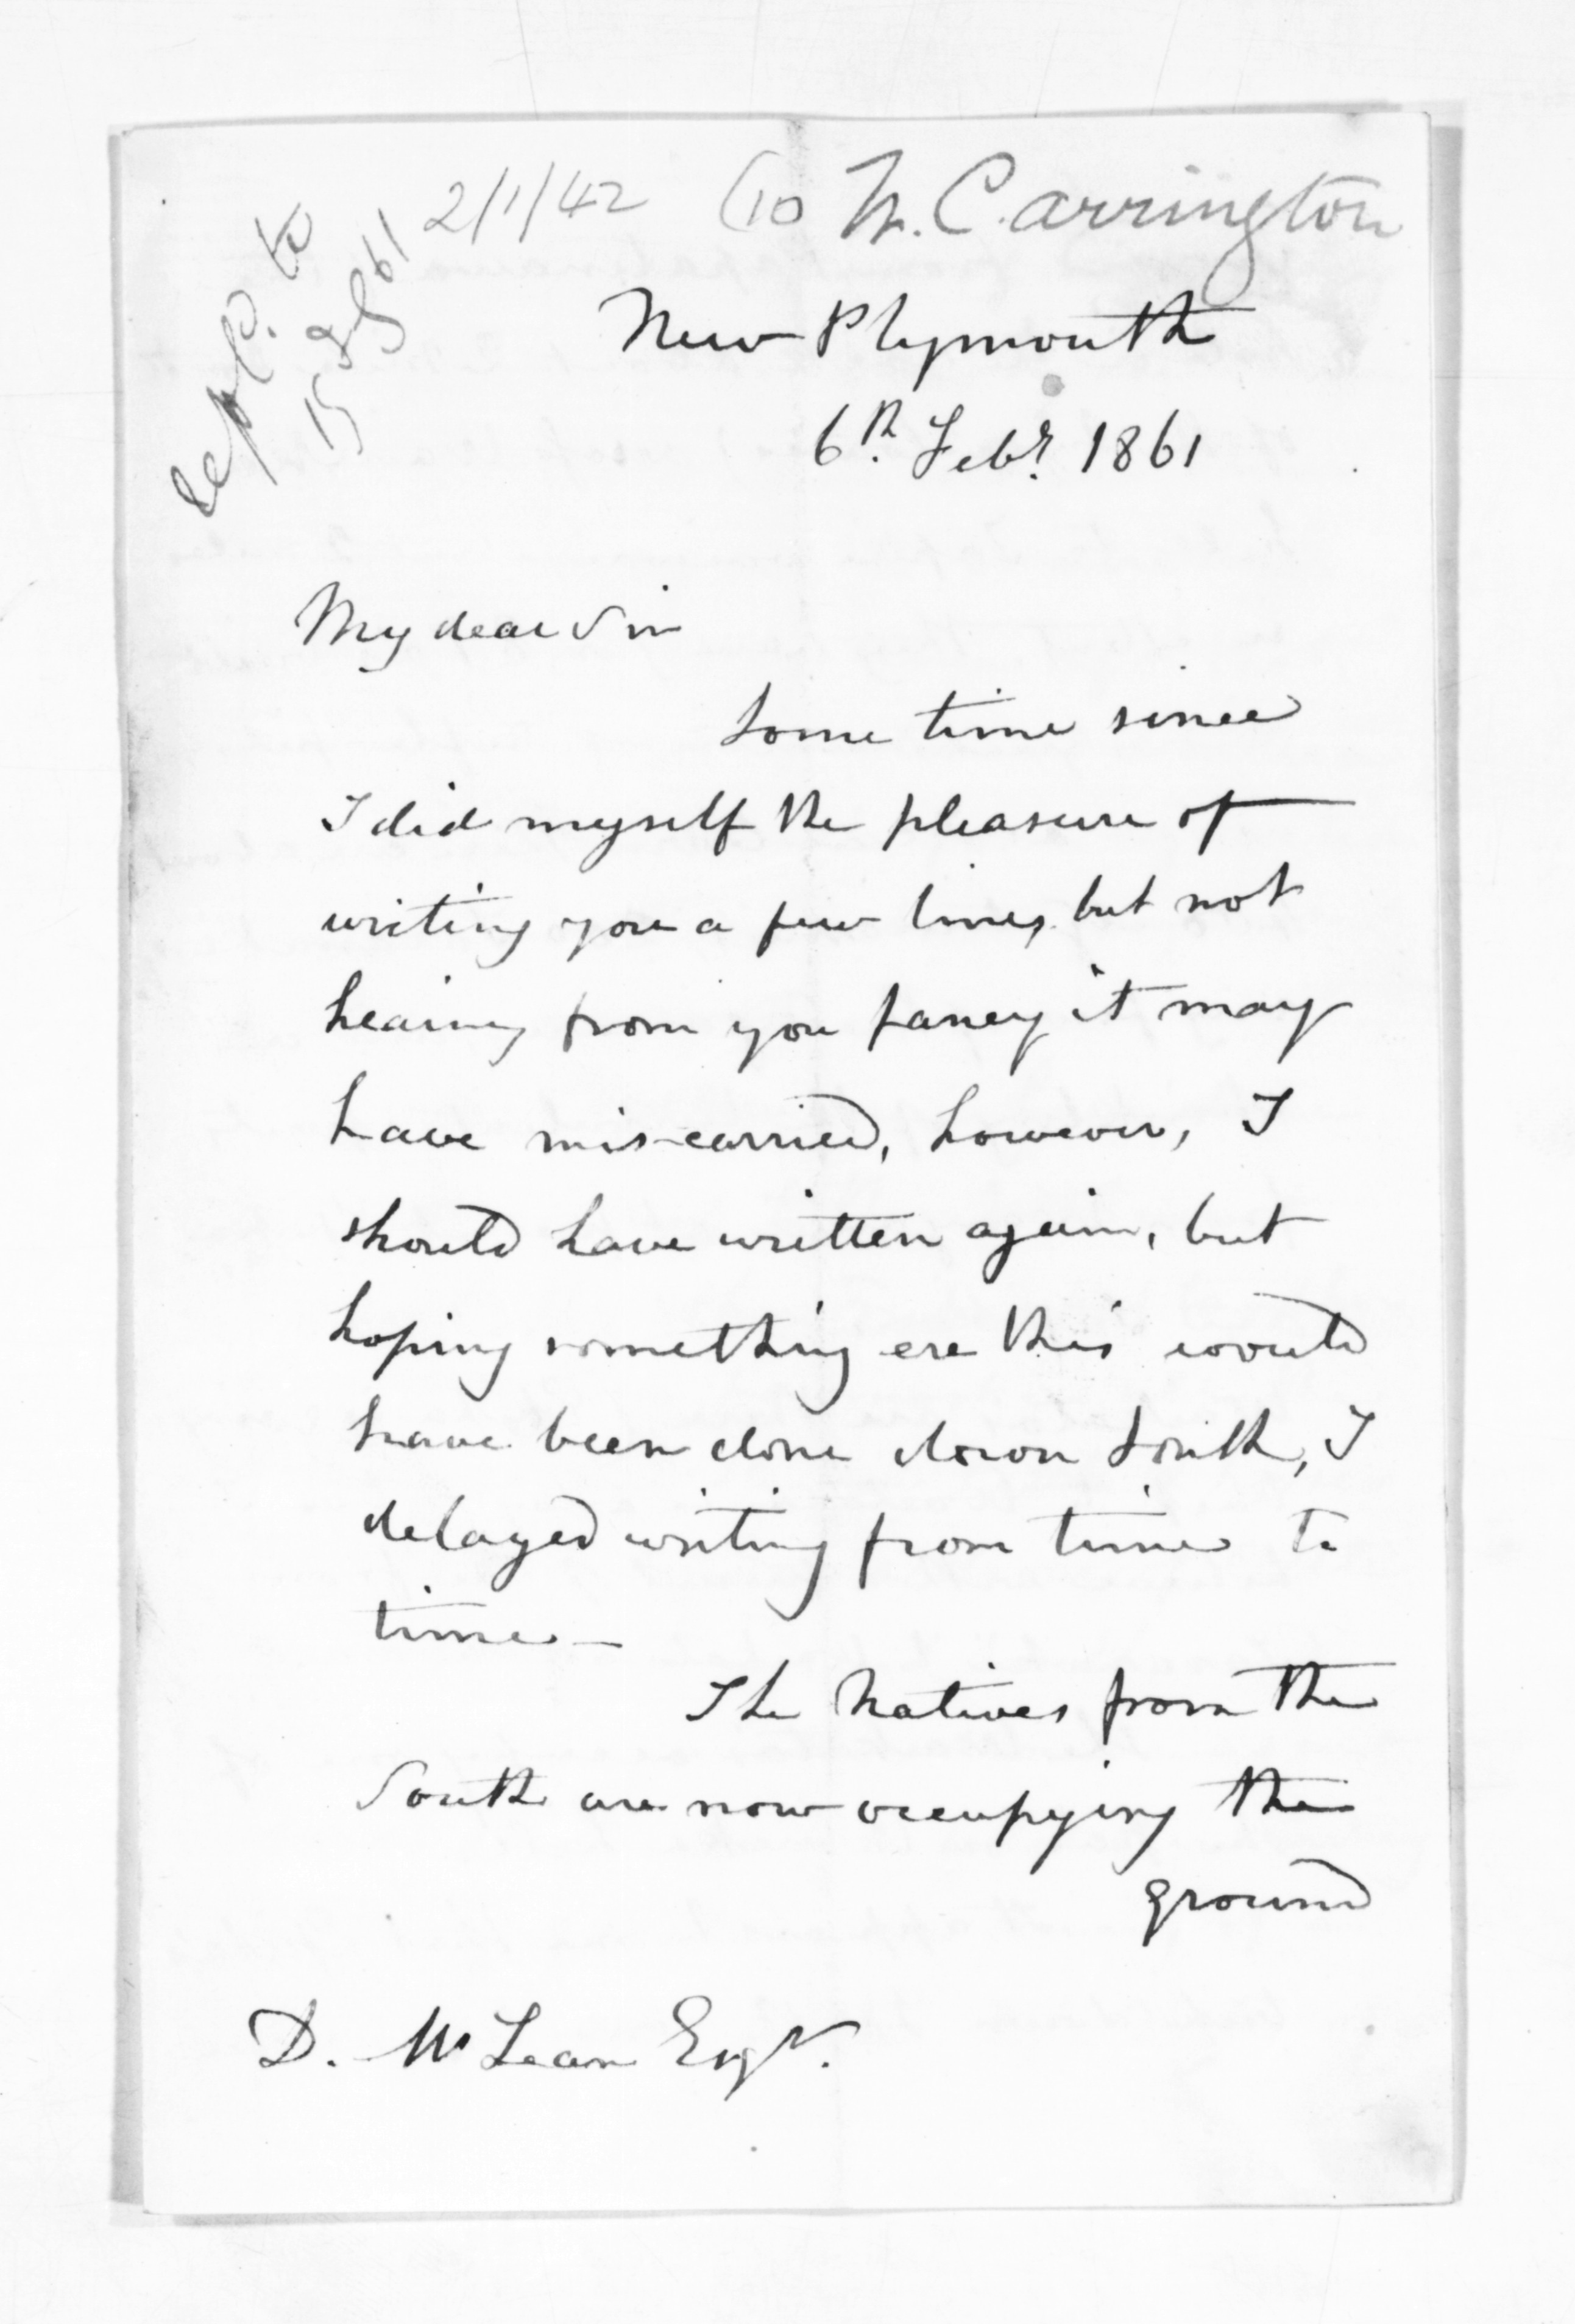 2/1/42 (10 W. Carrington
repld. to
15 Feb 61
New Plymouth
6th. Febr. 1861
My dear Sir
Some time since
I did myself the pleasure of
writing you a few lines, but not
hearing from you fancy it may
have mis-carried, however, I
should have written again, but
hoping something ere this would
have been done down South, I
delayed writing from time to
time —
The Natives from the
South are now occupying the
ground
D. McLean Esqr.